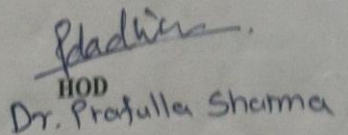 HOD
Dr. Prafulla Sharma